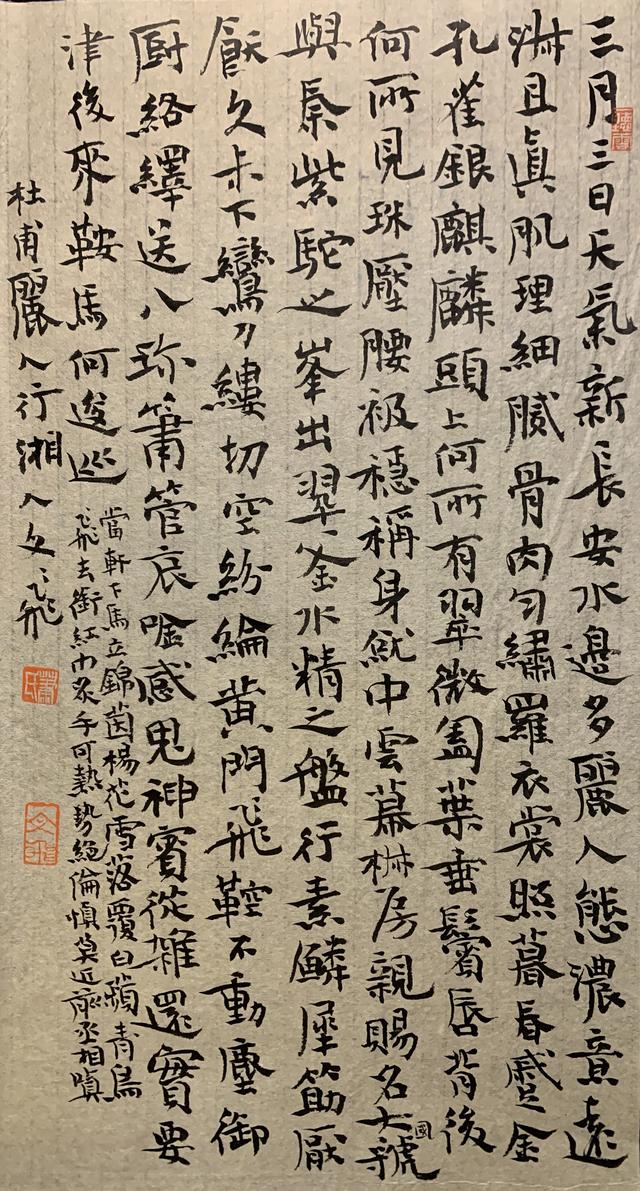 三月三日天氣新長安水邊多麗人態濃意遠
淑且眞肌理細膩骨肉勻繡羅衣裳照暮春蹙金
孔雀銀麒麟頭上何所有翠微㔩葉垂鬢唇背後
何所見珠壓腰衱穩稱身就中雲幕椒房親賜名大國虢
與秦紫駝之峯出翠釜水精之盤行素鱗犀筯厭
飫久未下鸞刀縷切空紛綸黃門飛鞚不動塵御
厨絡繹送八珍簫管哀吟感鬼神賓從雜遝實要
津後來鞍馬何逡巡
當軒下馬立錦茵楊花雪落覆白蘋青鳥
飛去銜紅巾炙手可熱勢絕倫慎莫近前丞相嗔
杜甫麗人行湘人文飛
蕭氏
文飛